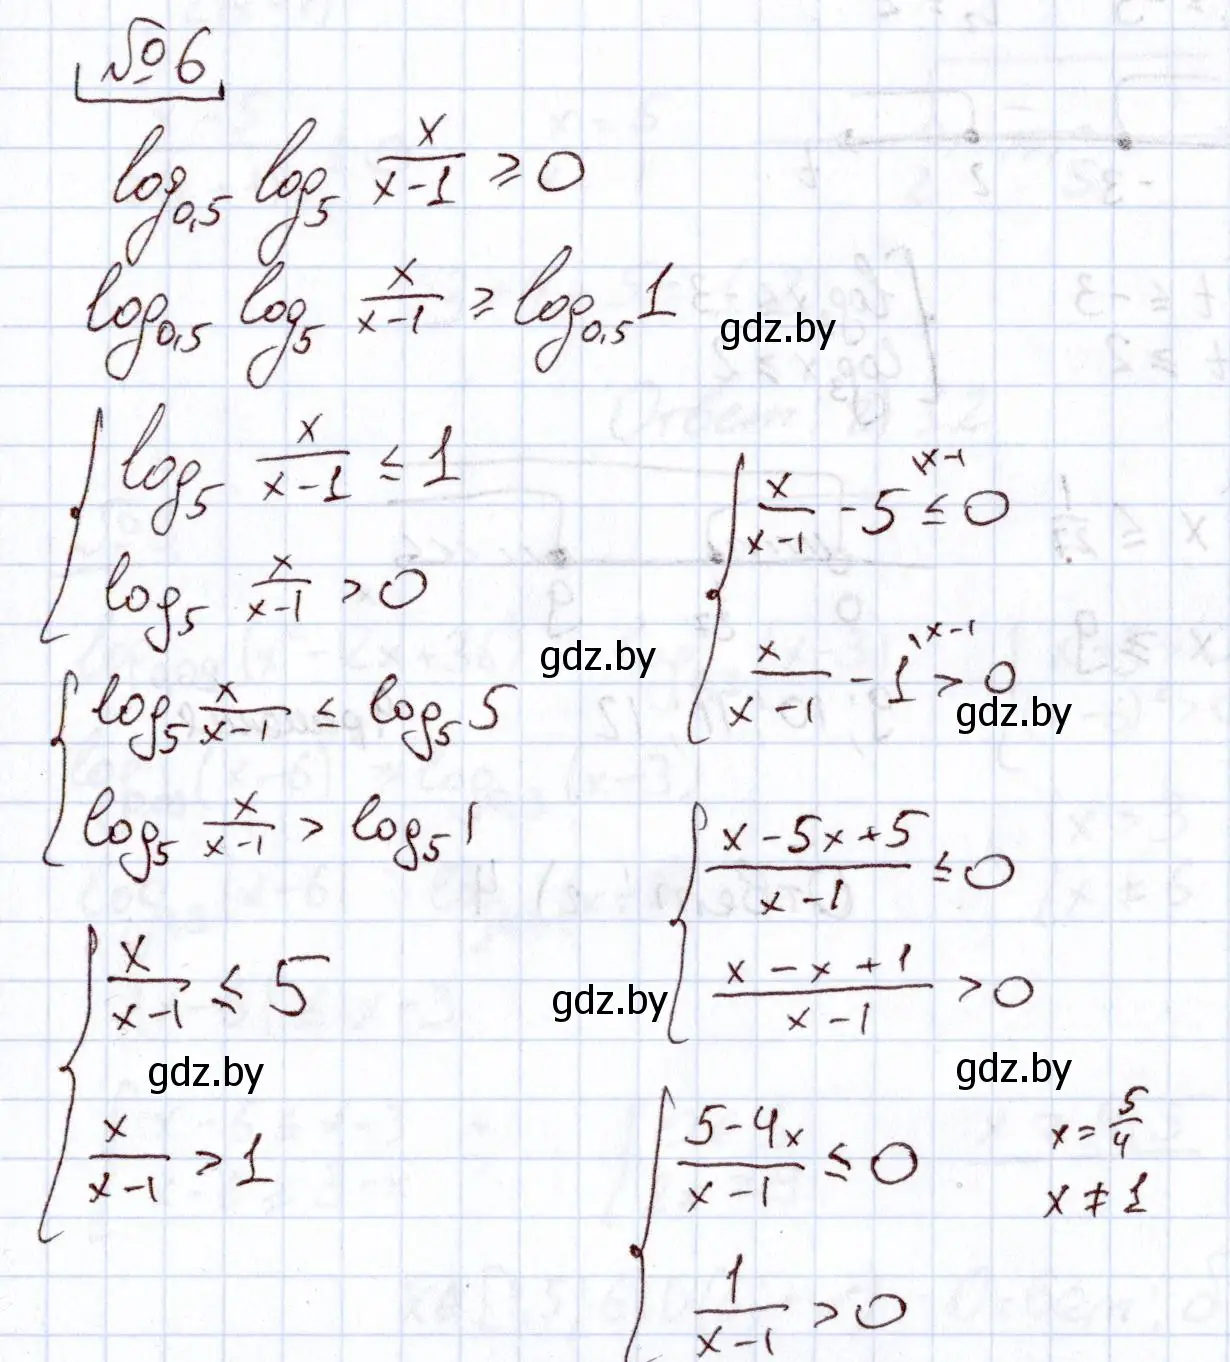 № 6
log_{0,5} log_5 \frac{x}{x-1} ≥ 0
log_{0,5} log_5 \frac{x}{x-1} ≥ log_{0,5} 1
gdz.by
{ log_5 \frac{x}{x-1} ≤ 1
log_5 \frac{x}{x-1} > 0
gdz.by
{ log_5 \frac{x}{x-1} ≤ log_5 5
log_5 \frac{x}{x-1} > log_5 1
{ \frac{x}{x-1} ≤ 5
gdz.by
\frac{x}{x-1} > 1
{ \frac{x}{x-1} - 5^{\x-1} ≤ 0
\frac{x}{x-1} - 1^{\x-1} > 0
gdz.by
{ \frac{x-5x+5}{x-1} ≤ 0
\frac{x-x+1}{x-1} > 0
gdz.by
gdz.by
{ \frac{5-4x}{x-1} ≤ 0
\frac{1}{x-1} > 0
x = \frac{5}{4}
x ≠ 1